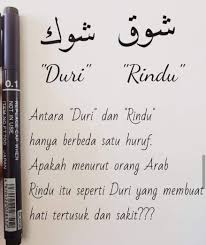 شوق شوك
"Duri" "Rindu"
Antara "Duri" dan "Rindu"
hanya berbeda satu huruf.
Apakah menurut orang Arab
Rindu itu seperti Duri yang membuat
hati tertusuk dan sakit???
0.1
REPLACE CAP WHEN
NOT IN USE